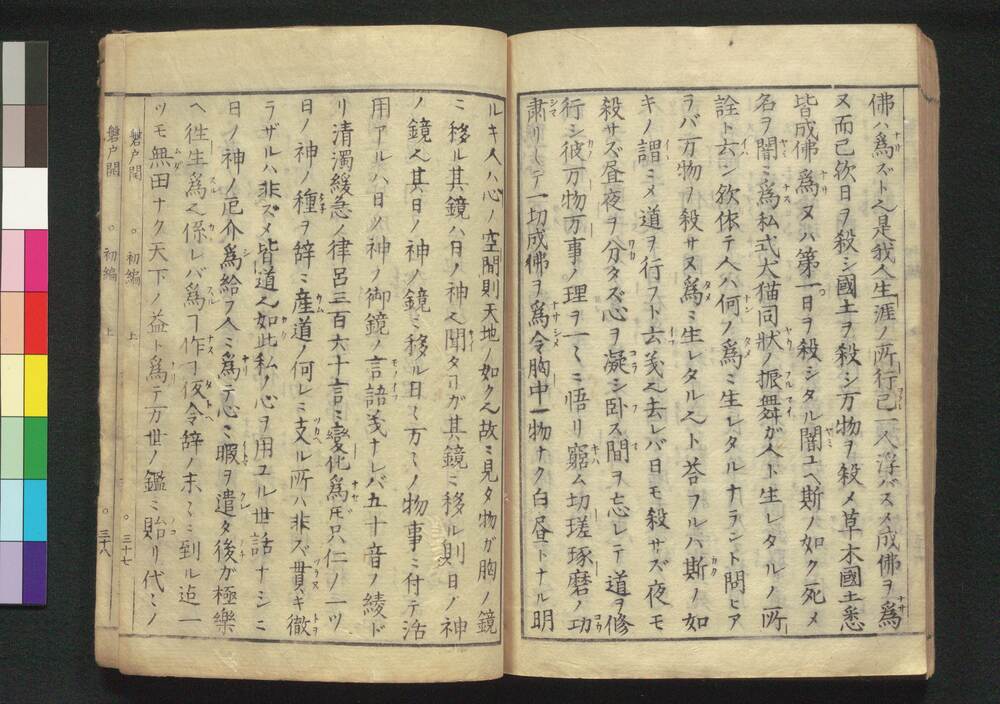 佛ハ爲ズト〻是我人生涯ノ所行己一人浮バスメ成佛ヲ爲
ヌ而已欤日ヲ殺シ國土ヲ殺シ万物ヲ殺メ草木國土悉
皆成佛爲ヌハ第一日ヲ殺シタル闇ユヘ斯ノ如ク死メ
名ヲ闇ミ爲私式犬猫同狀ノ振舞ガ人ト生レタルノ所
詮ト云ン欲依テ人ハ何ノ爲ミ生レタルナラント問ヒア
ラバ万物ヲ殺サヌ爲ミ生レタル〻ト荅フルハ斯ノ如
キノ謂ミメ道ヲ行フト云義〻去レバ日モ殺サズ夜モ
殺サズ昼夜ヲ分タズ心ヲ凝シ臥ス間ヲ忘レテ道ヲ修
行シ彼万物万事ノ理ヲ一〻ミ悟リ窮ム切瑳琢磨ノ功
肅リレテ一切成佛ヲ爲令胸中一物ナク白昼トナル明
ルキ人ハ心ノ空間則天地ノ如ク〻故ミ見タ物ガ胸ノ鏡
ミ移ル其鏡ハ日ノ神〻聞タヿガ其鏡ミ移ル則日ノ神
ノ鏡〻其日ノ神ノ鏡ミ移ル日〻万〻ノ物事ミ付テ活
用アルハ日ノ神ノ御鏡ノ言語義ナレバ五十音ノ綾ド
リ清濁緩急ノ律呂三百六十言ミ變化爲𪜈只仁ノ一ツ
日ノ神ノ種ヲ辞ミ産道ノ何レミ支ル所ハ非ズ貫キ徹
ラザルハ非ズメ皆道〻如此私ノ心ヲ用ユル世話ナシミ
日ノ神ノ厄介爲給フ人ミ爲テ心ミ暇ヲ遣タ後ガ極樂
ヘ徃生爲〻係レバ爲ヿ作ヿ夜令辞ノ末〻ミ到ル迠一
ツモ無田ナク天下ノ益ト爲テ万世ノ鑑ミ貽リ代ミノ
磐戸開 ○初編 上 ○三十七
磐戸開 ○初編 上 ○三十八